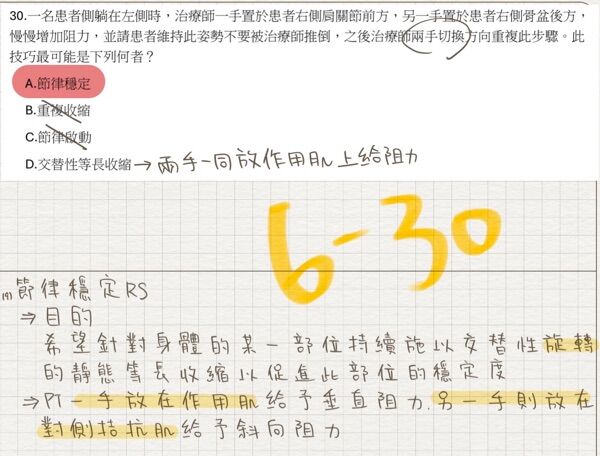 30.一名患者側躺在左側時，治療師一手置於患者右側肩關節前方，另一手置於患者右側骨盆後方，
慢慢增加阻力，並請患者維持此姿勢不要被治療師推倒，之後治療師兩手切換方向重複此步驟。此
技巧最可能是下列何者？
A.節律穩定
B.重複收縮
C.節律啟動
D.交替性等長收縮→兩手一同放作用肌上給阻力
6-30
(19)節律穩定RS
⇒目的
希望針對身體的某一部位持續施以交替性旋轉
的靜態等長收縮以促進此部位的穩定度
⇒PT一手放在作用肌給予垂直阻力.另一手則放在
對側拮抗肌給予斜向阻力